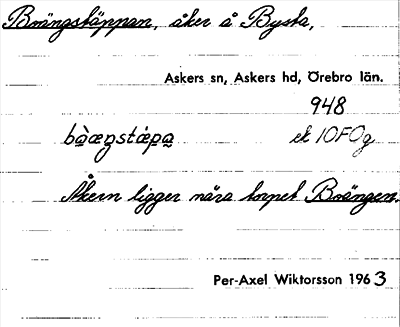 Brängstäppan, åker å Bysta,
Askers sn, Askers hd, Örebro län.
948
bὰæŋstæ̀pa̤ ek 10F0g
Åkern ligger nära torpet Brängen.
Per-Axel Wiktorsson 1963